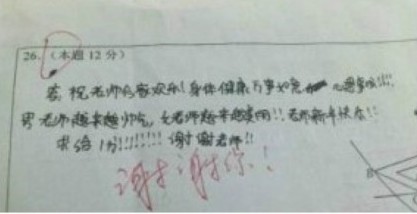 26. (本题 12 分)
答 祝老师合家欢乐!身体健康万事如意 心想事成!!!!
男老师越来越帅气,女老师越来越美丽!!老师新年快乐!!
求给 1分!!!!!!! 谢谢老师!!
谢谢你!!
B